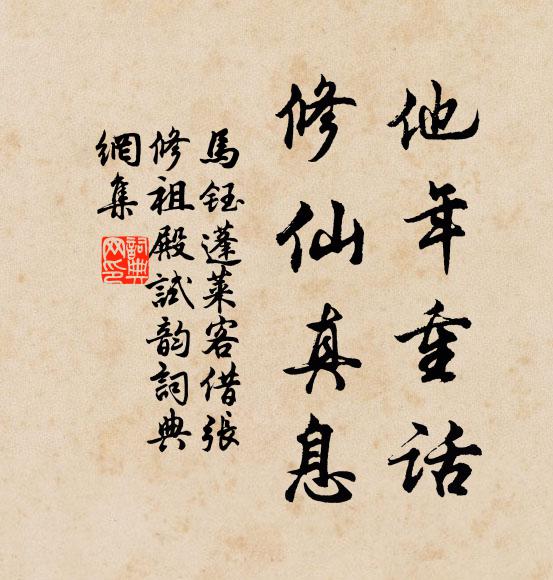 他年重话
修仙真息
馬鈺蓬莱客借張
修祖殿試韵詞典
網集
詞典
网印